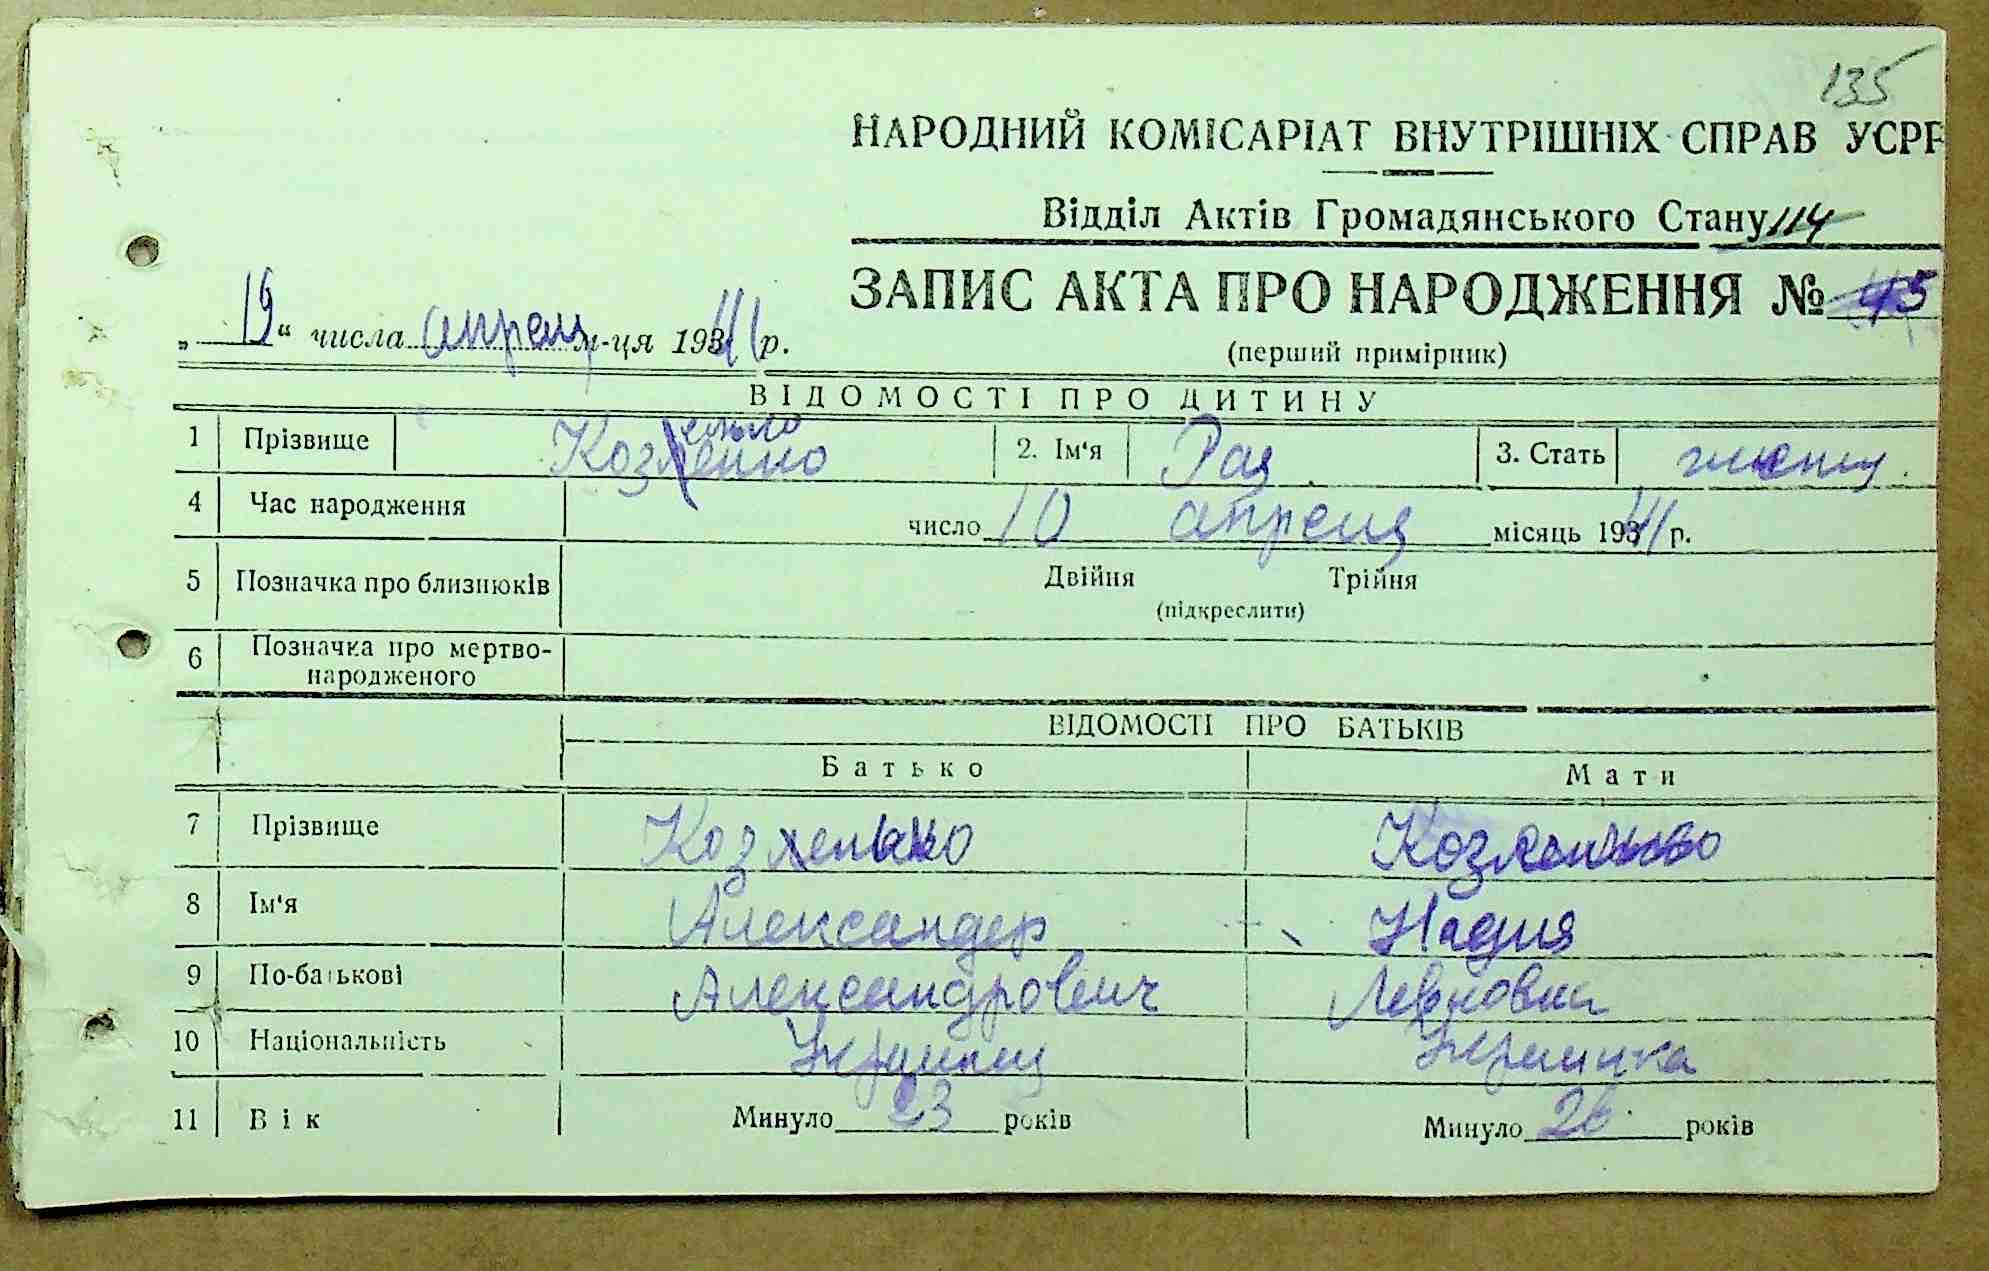 135
НАРОДНИЙ КОМІСАРІАТ ВНУТРІШНІХ СПРАВ УСРР
Відділ Актів Громадянського Стану 114
ЗАПИС АКТА ПРО НАРОДЖЕННЯ № 45
„19“ числа апреля м-ця 1941 р.
(перший примірник)
ВІДОМОСТІ ПРО ДИТИНУ
1 Прізвище 2. Ім'я Рая 3. Стать женск.
4 Час народження число 10 апреля місяць 1941 р.
5 Позначка про близнюків Двійня Трійня
(підкреслити)
6 Позначка про мертво-
народженого
ВІДОМОСТІ ПРО БАТЬКІВ
Батько Мати
7 Прізвище
8 Ім'я Александер Надия
9 По-батькові Александрович
10 Національність Украинец Украинка
11 Вік Минуло 23 років Минуло 26 років